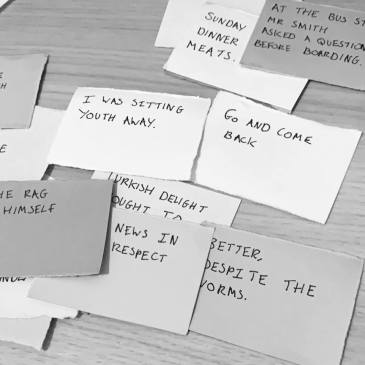 SUNDAY
DINNER
MEATS.
AT THE BUS
MR SMITH
ASKED A QUESTION
BEFORE BOARDING.
I WAS SITTING
YOUTH AWAY.
GO AND COME
BACK
THE RAG
HIMSELF
TURKISH DELIGHT
OUGHT TO
NEWS IN
RESPECT
BETTER,
DESPITE THE
WORMS.